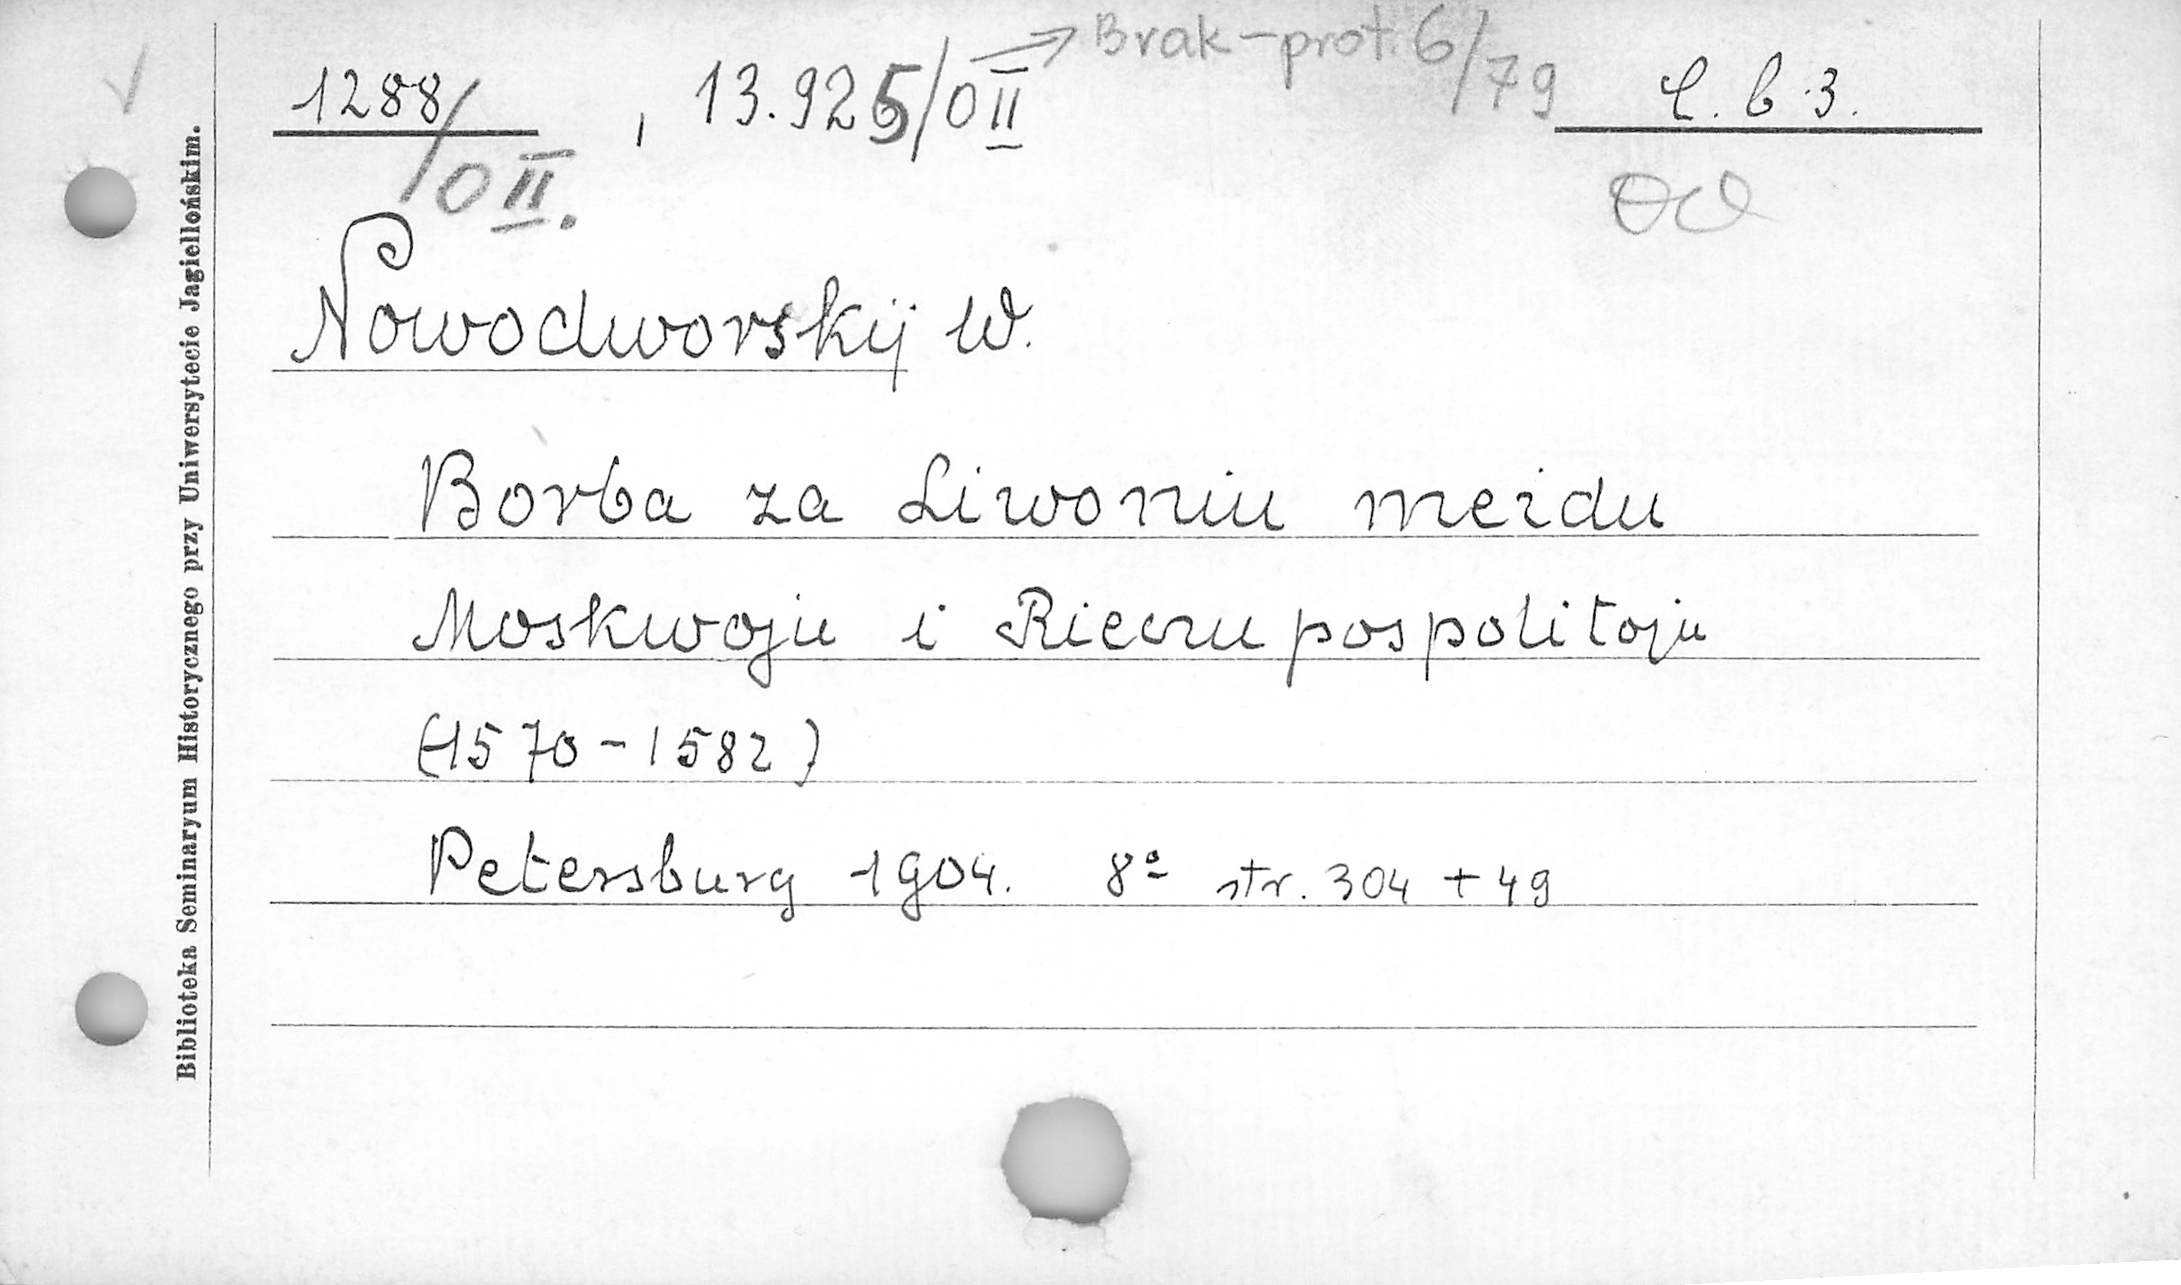 1288/OII. , 13.925/OII → Brak-prot. 6/79 C. b 3.
Nowodworskij W.
Borba za Liwoniu meżdu
Moskwoju i Rieczu pospolitoju
(1570-1582)
Petersburg 1904. 8° str. 304 + 49
Biblioteka Seminaryum Historycznego przy Uniwersytecie Jagiellońskim.